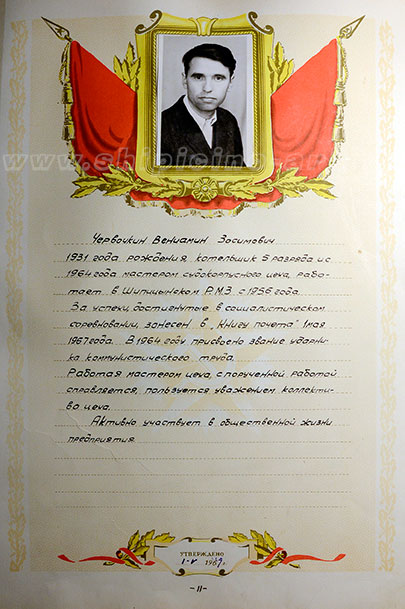 www.shipicino-ar
Червочкин Вениамин Зосимович
1931 года рождения котельщик 5 разряда и с
1964 года мастером судокорпусного цеха, рабо-
тает в Шипицынском Р.М.З. с 1956 года.
За успехи, достигнутые в социалистическом
соревновании, занесен в „Книгу почета" 1 мая
1967 года. В 1964 году присвоено звание ударни-
ка коммунистического труда.
Работая мастером цеха, с порученной работой
справляется, пользуется уважением коллекти-
ва цеха.
Активно участвует в общественной жизни
предприятия.
УТВЕРЖДЕНО
1-V 1967г.
-11-